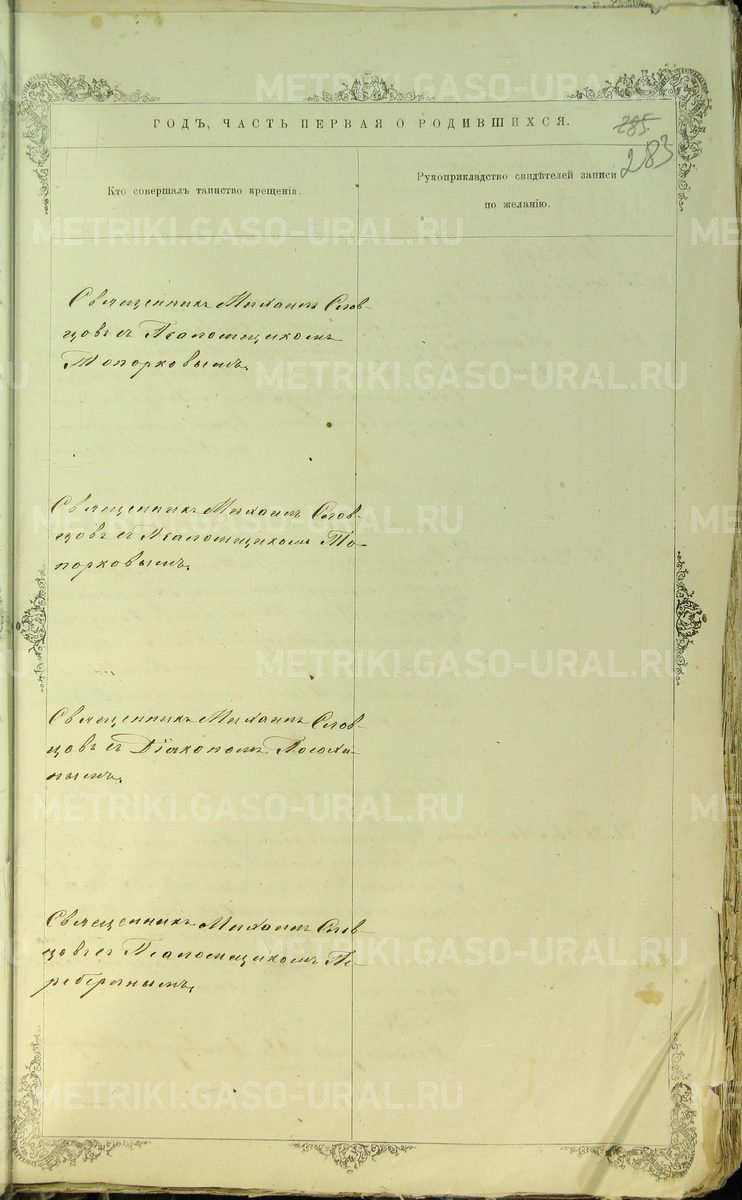 ГОДЪ, ЧАСТЬ ПЕРВАЯ О РОДИВШИХСЯ.
285.
283
Кто совершалъ таинство крещенія.
Рукоприкладство свидѣтелей записи
по желанію.
Священникъ Михаилъ Слов-
цовъ съ Псаломщикомъ
Топорковымъ.
Священникъ Михаилъ Слов-
цовъ съ Псаломщикомъ То-
порковымъ.
Священникъ Михаилъ Слов-
цовъ съ Діакономъ
Священникъ Михаилъ Слов-
цовъ съ Псаломщикомъ Пе-
METRIKI.GASO-URAL.RU